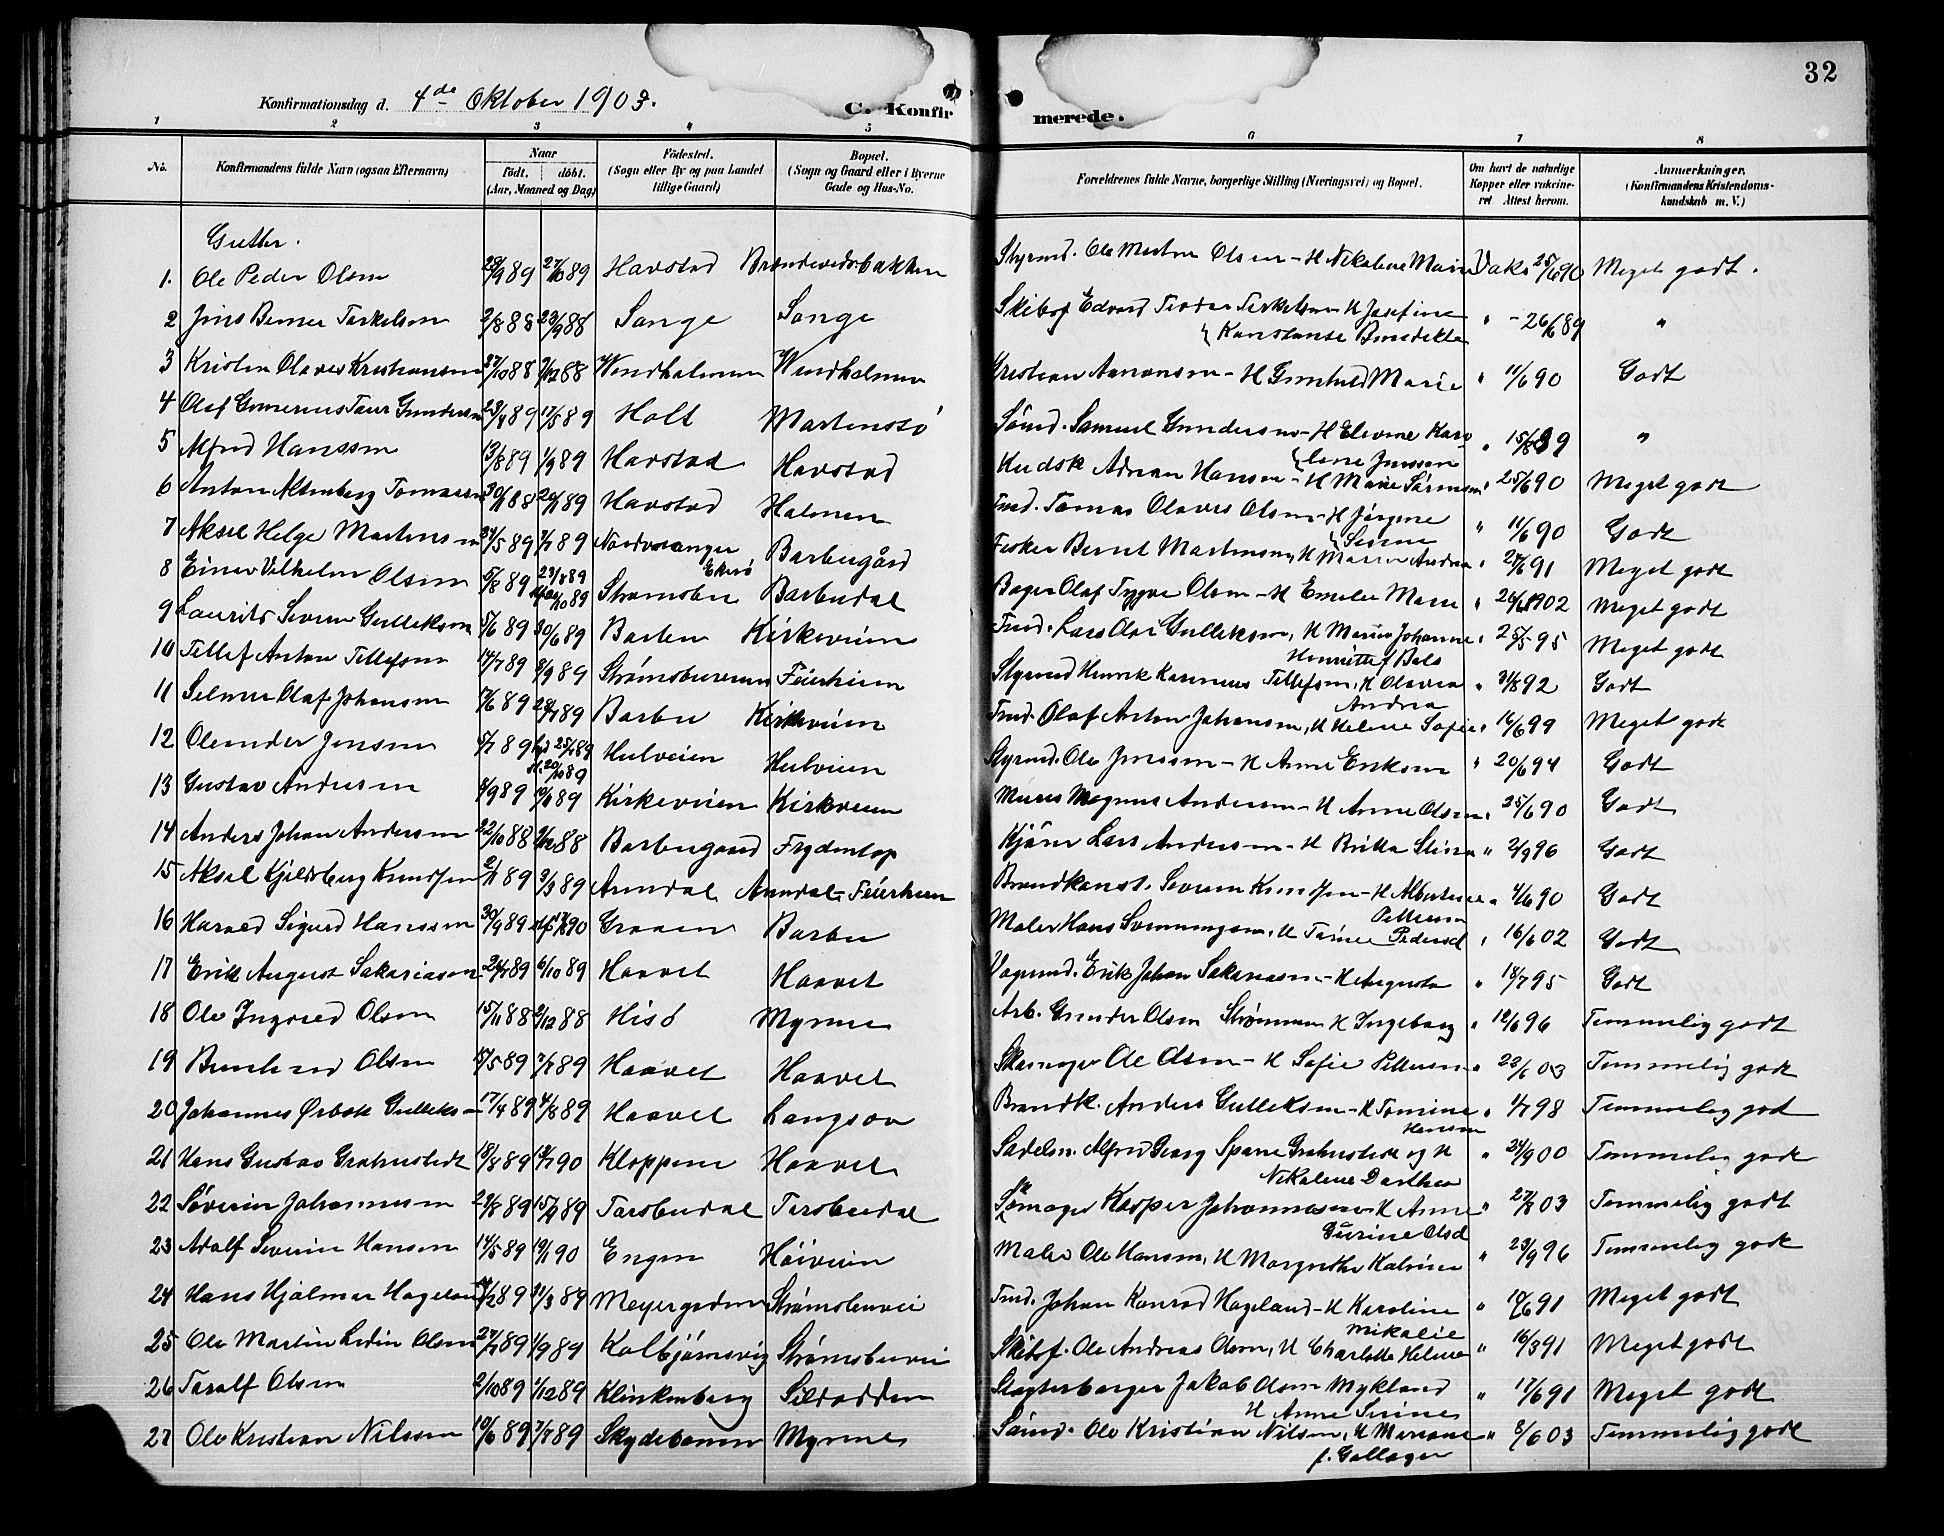 32
Konfirmationsdag d. 4de Oktober 1903.
C. Konfirmerede.
1 2 3 4 5 6 7 8
No. Konfirmandens fulde Navn (ogsaa Efternavn) Naar født. døbt. (Aar, Maaned og Dag) Fødested. (Sogn eller By og paa Landet tillige Gaard) Bopæl. (Sogn og Gaard eller i Byerne Gade og Hus-No. Forældrenes fulde Navne, borgerlige Stilling (Næringsvei) og Bopæl. Om havt de naturlige Kopper eller vakcineret Attest herom. Anmærkninger. (Konfirmandens Kristendomskundskab m. V.)
Gutter.
1. Ole Peder Olsen 29/9 89 27/10 89 Havstad Brændevidsbakken Styrmd. Ole Morten Olsen - H Nikoline Marie Vaks 25/6 90 Meget godt.
2 Jens Berner Terkelsen 2/8 88 23/9 88 Songe Songe Skibsf Edvard Teodor Terkelsen H Josefine Konstanse Benedikte " - 26/6 89 "
3 Kristen Olaves Kristiansen 27/10 88 2/12 88 Windholmen Windholmen Kristian Aanonsen - H Gunhild Marie " 11/6 90 Godt
4 Olaf Gunerius Taur Gundersen 23/4 89 17/5 89 Holt Mortensbø Sømd. Samuel Gundersen - H Elevine Karoline Jensen " 15/8 89 "
5 Alfred Hanssen 13/8 89 1/9 89 Havstad Havstad Kudsk Adrian Hansen - H Marie Sørensen " 25/6 90 Meget godt
6 Anton Altenberg Tomassen 30/11 88 20/1 89 Havstad Holmen Tmd. Tomas Olaves Olsen - H Jørgine Sesine " 11/6 90 Godt
7 Aksel Helge Martinsen 24/5 89 7/7 89 Nordvaranger Ekerø Barbugård Fisker Bernt Martinsen, H Maren Andrea " 27/6 91 Meget godt
8 Einar Vilhelm Olsen 5/8 89 23/8 89 20/10 89 Strømsbu Barbudal Bager Olaf Trygve Olsen - H Emilie Marie " 26/6 1902 Meget godt
9 Laurits Severin Gulleksen 5/6 89 30/6 89 Barbu Kirkeveien Tmd. Lars Olai Gulleksen, H Maren Johanne Henriette f Bols " 25/5 95 Meget godt
10 Tellef Anton Tellefsen 14/7 89 8/9 89 Strømsbuveien Feierheien Styrmd Henrik Rasmus Tellefsen, H Olavia Andrea " 31/8 92 Godt
11 Selmer Olaf Johansen 17/6 89 28/7 89 Barbu Kirkeveien Tmd. Olaf Anton Johansen, H Helene Sofie " 16/6 99 Meget godt
12 Oleander Jensen 5/7 89 25/7 89 20/10 89 Hulveien Hulveien Styrmd. Ole Jenssen - H Anne Eriksen " 20/6 94 Godt
13 Gustav Andersen 4/9 89 89 Kirkeveien Kirkeveien Murer Magnus Andersen - H Anne Olsen " 25/6 90 Godt
14 Anders Johan Andersen 22/10 88 9/12 88 Barbugaard Frydentop Kjører Lars Andersen - H Britta Stina " 2/9 96 Godt
15 Aksel Kjeldsberg Knudsen 2/1 89 3/3 89 Arendal Arendal - Feierheien Brandkonst. Severin Knudsen - H Albertine Pettersen " 4/6 90 Godt
16 Harald Sigurd Hanssen 30/9 89 90 Graaen Barbu Maler Hans Svenningsen, H Tomine Pedersd " 16/6 02 Godt
17 Erik August Sakariasen 24/7 89 6/10 89 Haavet Haavet Vognmd. Erik Johan Sakariasen - H Augusta " 18/7 95 Godt
18 Ole Ingvald Olsen 15/11 88 2/12 88 Hisø Myrene Arb. Gunder Olsen Strømmen H Ingeborg " 12/6 96 Temmelig godt
19 Bernhard Olsen 15/5 89 7/7 89 Haavet Haavet Skomager Ole Olsen - H Sofie Pettersen " 22/6 03 Temmelig godt
20 Johannes Ørbæk Gulleksen 17/4 89 4/8 89 Haavet Langsæv Brandk. Anders Gulleksen - H Tomine Hansen " 1/7 98 Temmelig god
21 Hans Gustav Grahnstedt 18/8 89 90 Kloppene Haavet Sadelm. Alfred Georg Sparre Grahnstedt og H Nikoline Dorthea " 24/9 00 Temmelig godt
22 Severin Johannesen 29/8 89 15/9 89 Torsbudal Torsbudal Skomager Kasper Johannesen - H Anne Gurine Olsd " 27/8 03 Temmelig godt
23 Adolf Severin Hansen 14/5 89 19/1 90 Engen Høiveien Maler Ole Hansen, H Margrethe Katrine " 23/9 96 Temmelig godt
24 Hans Hjalmar Hageland 89 31/3 89 Meyergaden Strømsbuvei Tmd. Johan Konrad Hageland - H Karoline Mikalie " 10/6 91 Meget godt
25 Ole Martin Ledin Olsen 27/7 89 1/9 89 Kolbjørnsvig Strømsbuvei Skibsf. Ole Andreas Olsen, H Charlotte Helene " 16/3 91 Meget godt
26 Toralf Olsen 2/10 89 1/12 89 Klinkenberg Sildodden Slagterborger Jakob Olsen Mykland H Anne Serine " 17/6 91 Meget godt
27 Ole Kristian Nilssen 10/6 89 7/7 89 Skydebanen Myrene Sømd. Ole Kristian Nilsen, H Mariane f. Gallager " 8/6 03 Temmelig godt